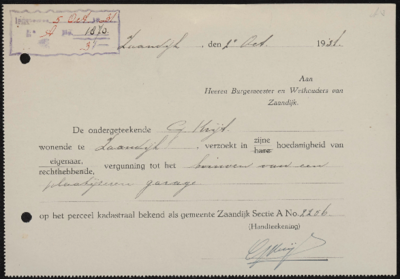 5 Oct. 31
1870
31
Zaandijk, den 1e Oct. 1931.
Aan
Heeren Burgemeester en Wethouders van
Zaandijk.
De ondergeteekende
wonende te Zaandijk, verzoekt in zijne hare hoedanigheid van
eigenaar, rechthebbende, vergunning tot het bouwen van een
plaatijzeren garage
op het perceel kadastraal bekend als gemeente Zaandijk Sectie A No. 2256
(Handteekening)